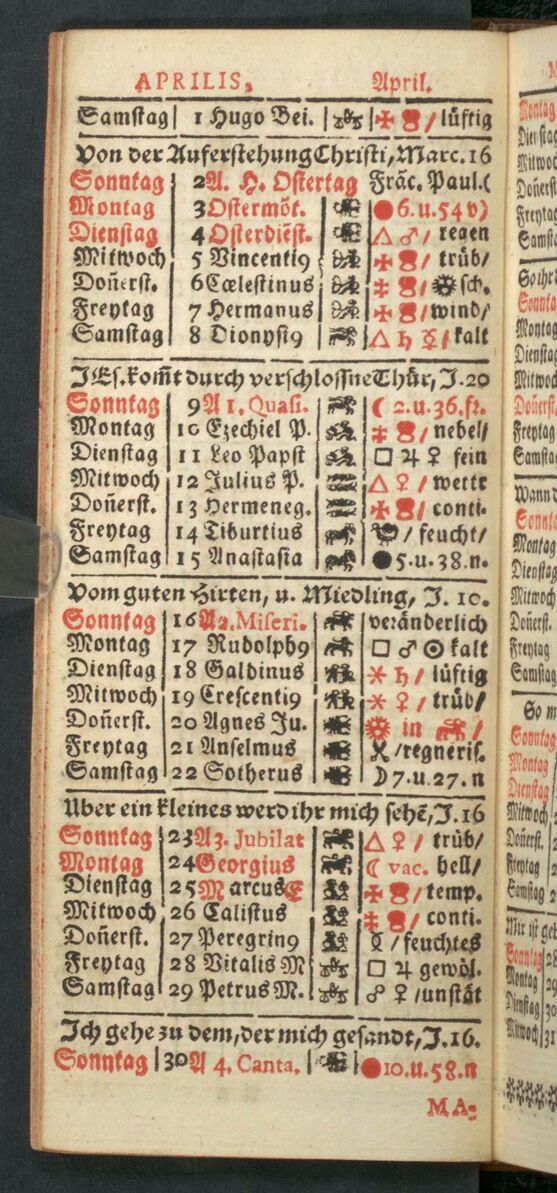 APRILIS, April.
Samstag 1 Hugo Bei. / lüftig
Von der Auferstehung Christi, Marc. 16
Sonntag 2 A. H. Ostertag Fräc. Paul. (
Montag 3 Ostermõt. ● 6. u. 54 v)
Dienstag 4 Osterdiẽst. △ ♂ / regen
Mitwoch 5 Vincenti9 / trüb/
Doñerst. 6 Cœlestinus / sch.
Freytag 7 Hermanus / wind/
Samstag 8 Dionysi9 △ ♄ ☿ / kalt
JEs. kom̃t durch verschlossne Thür, J. 20
Sonntag 9 A 1. Quasi. ☾ 2. u. 36. fr.
Montag 10 Ezechiel P. / nebel/
Dienstag 11 Leo Papst □ ♃ ♀ fein
Mitwoch 12 Julius P. △ ♀ / wettr
Doñerst. 13 Hermeneg. / conti.
Freytag 14 Tiburtius / feucht/
Samstag 15 Anastasia ● 5. u. 38. n.
Vom guten Hirten, u. Miedling, J. 10.
Sonntag 16 A 2. Miseri. veränderlich
Montag 17 Rudolph9 □ ♂ ☉ kalt
Dienstag 18 Galdinus ⚹ ♄ / lüftig
Mitwoch 19 Crescenti9 ⚹ ♀ / trüb/
Doñerst. 20 Agnes Ju. in /
Freytag 21 Anselmus / regneris.
Samstag 22 Sotherus ☽ 7. u. 27. n
Uber ein kleines werd ihr mich sehẽ, J. 16
Sonntag 23 A 3. Jubilat △ ♀ / trüb/
Montag 24 Georgius ☾ vac. hell/
Dienstag 25 Marcus E / temp.
Mitwoch 26 Calistus / conti.
Doñerst. 27 Peregrin9 / feuchtes
Freytag 28 Vitalis M □ ♃ gewöl.
Samstag 29 Petrus M. ☍ ♀ / unstät
Ich gehe zu dem, der mich gesandt, J. 16.
Sonntag 30 A 4. Canta. ● 10. u. 58. n
MA-